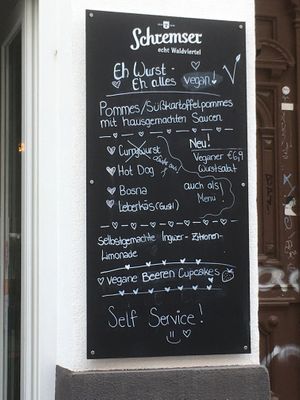 Schremser
echt Waldviertel
Eh Wurst -
Eh alles vegan!
Pommes/Süßkartoffelpommes
mit hausgemachten Saucen
Currywurst
Hot Dog
Bosna
Leberkäs (Gusti)
Neu!
Veganer €6,9
Wurstsalat
auch als
Menü
Selbstgemachte Ingwer-Zitronen-
Limonade
Vegane Beeren Cupcakes
Self Service!